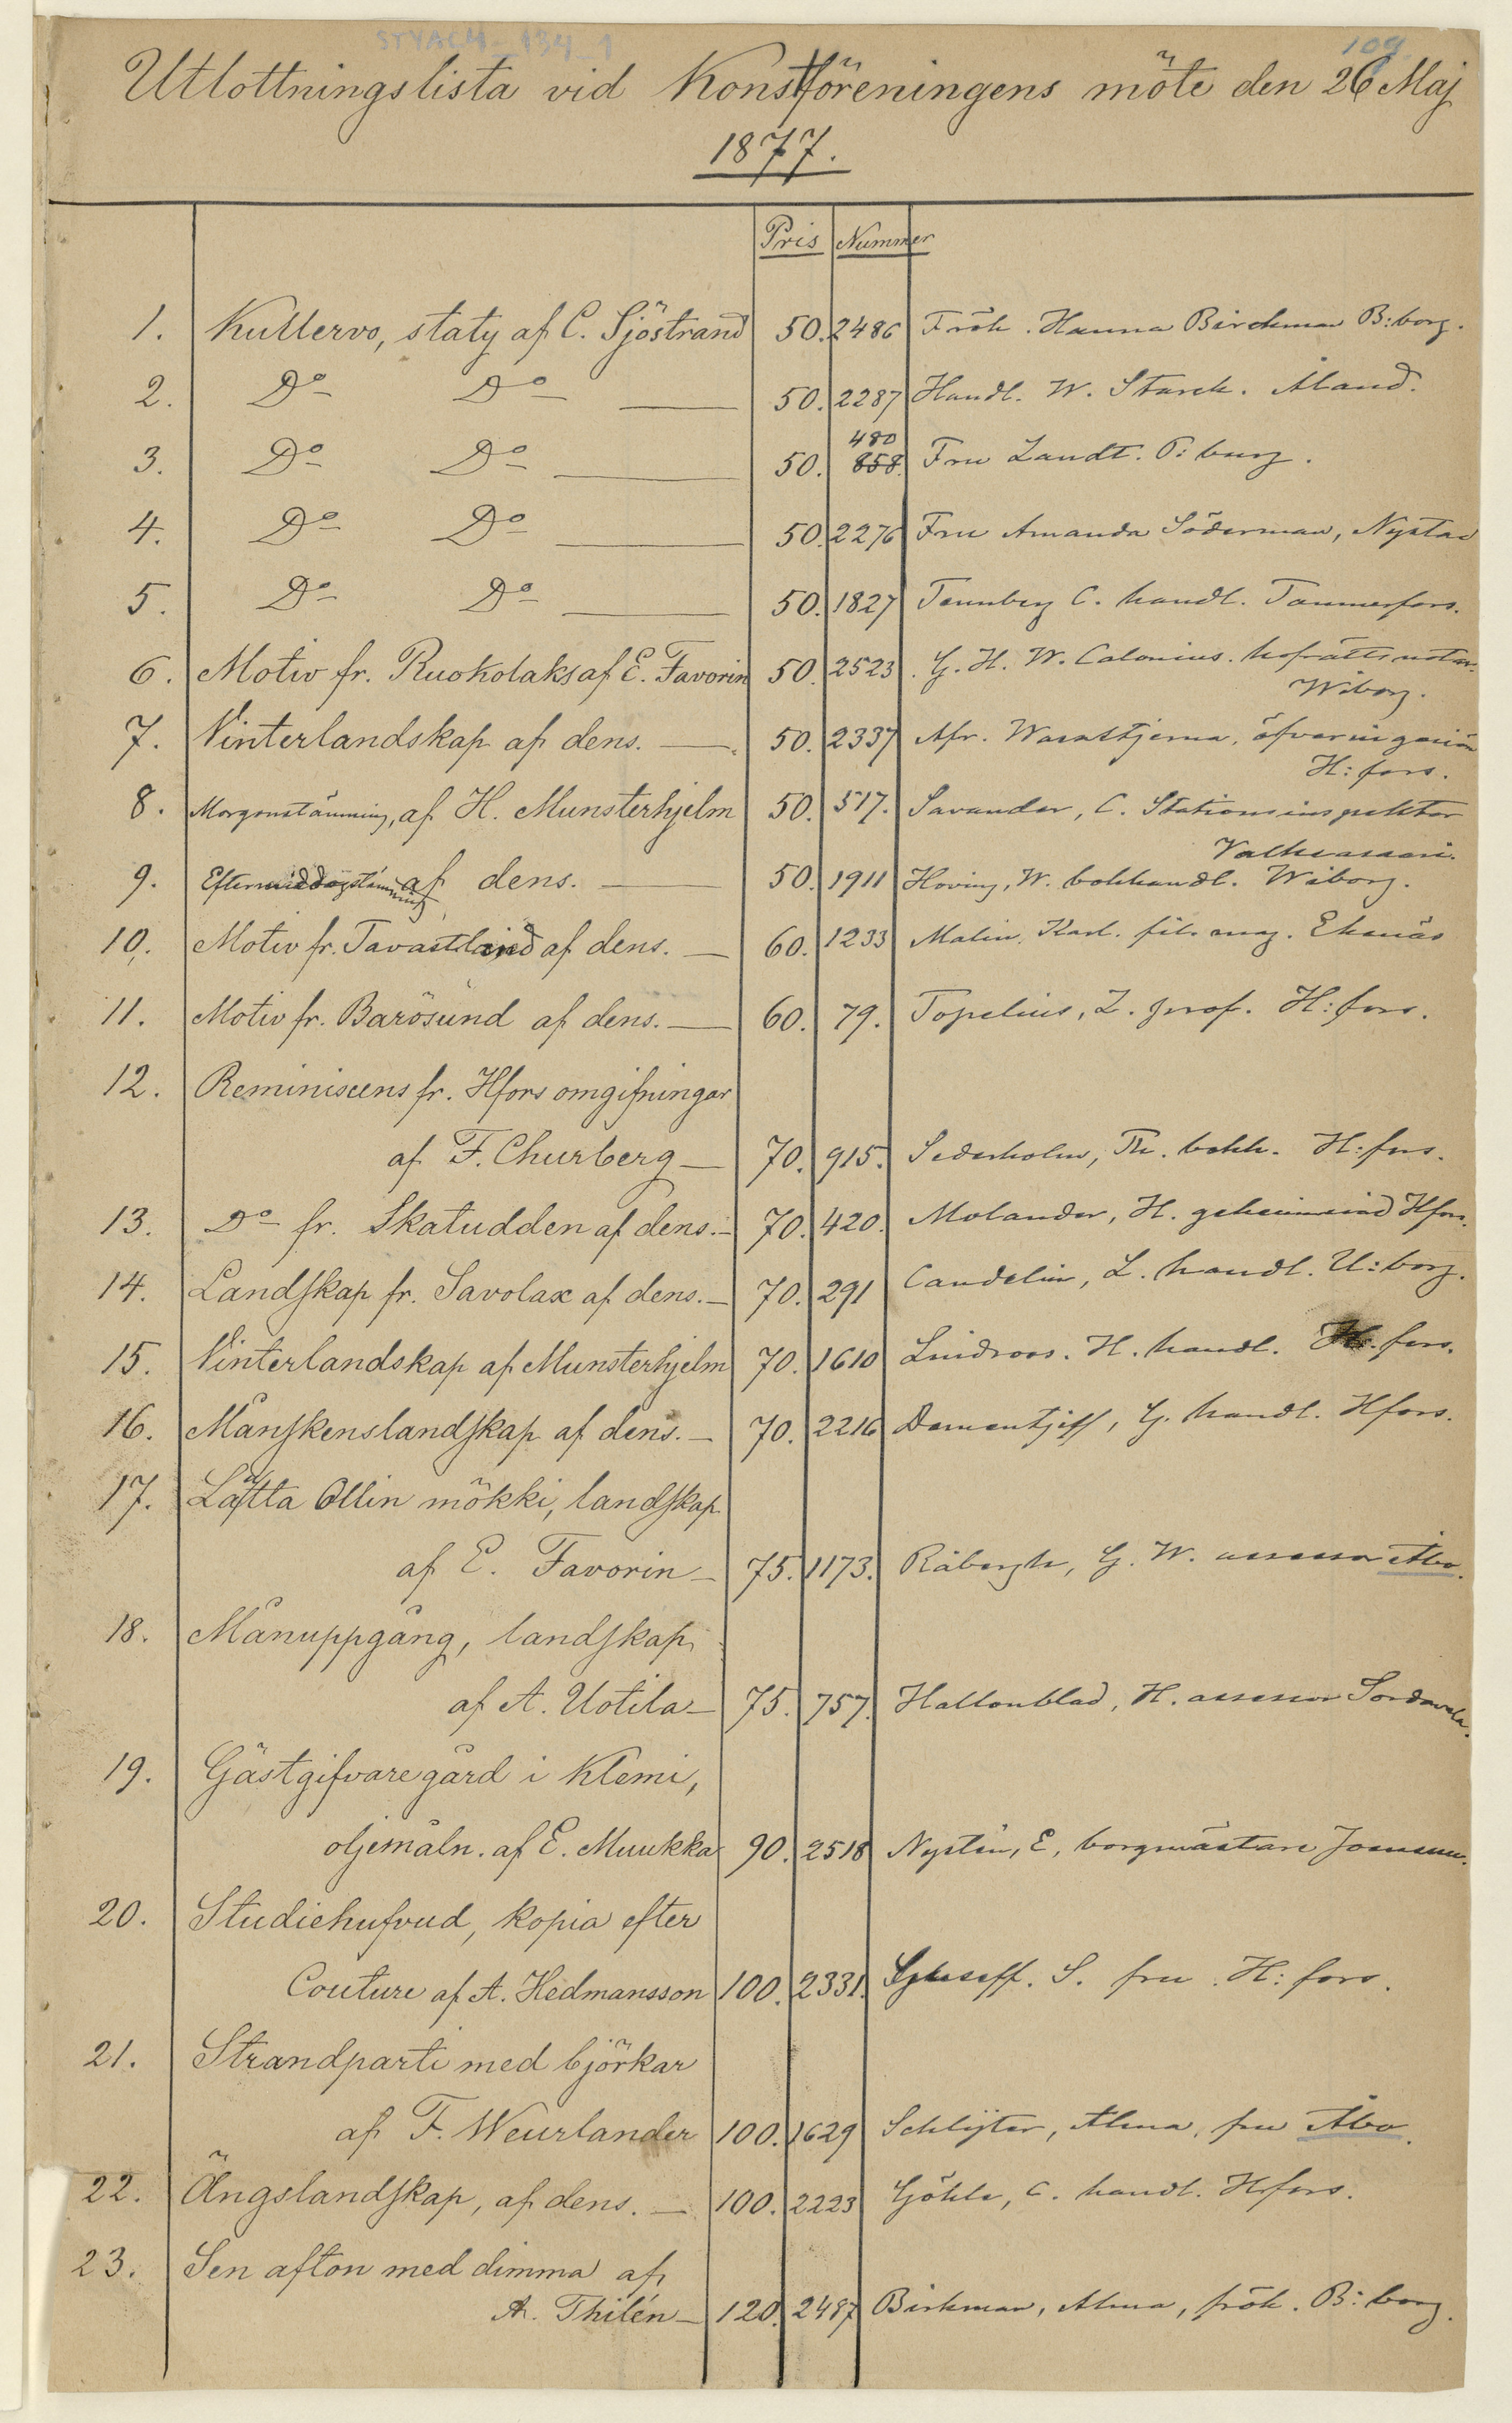 STYACH_134_1
109
Utlottningslista vid Konstföreningens möte den 26 Maj
1877.
Pris Nummer
1. Kullervo, staty af C. Sjöstrand 50. 2486 Frök. Hanna Birckman B:borg.
2. Do Do 50. 2287 Handl. W. Starck. Åland.
480
3. Do Do 50. 858. Fru Zandt. P:burg.
4. Do Do 50. 2276 Fru Amanda Söderman, Nystad
5. Do Do 50. 1827 Tennberg C. handl. Tammerfors.
6. Motiv fr. Ruokolaks af E. Favorin 50. 2523. G. H. W. Calonius. hofrätts notar.
Wiborg.
7. Vinterlandskap af dens. 50. 2337 Afr. Wasastjerna, öfveringeniör
H:fors.
8. Morgonstämning, af H. Munsterhjelm 50. 517. Savander, C. Stationsinspektor
Valkeasaari.
9. Eftermiddagstämning af dens. 50. 1911 Hoving, W. bokhandl. Wiborg.
10. Motiv fr. Tavastland af dens. 60. 1233 Malin, Karl. fil. mag. Ekenäs
11. Motiv fr. Barösund af dens. 60. 79. Topelius, Z. prof. H:fors.
12. Reminiscens fr. Hfors omgifningar
af F. Churberg 70. 915. Sederholm, Th. bokh. H:fors.
13. Do fr. Skatudden af dens. 70. 420. Molander, H. geheimeråd Hfors.
14. Landskap fr. Savolax af dens. 70. 291 Candelin, L. handl. U:borg.
15. Vinterlandskap af Munsterhjelm 70. 1610 Lindroos. H. handl. H:fors.
16. Månskenslandskap af dens. 70. 2216 Dementjeff, G. handl. Hfors.
17. Lättä Ollin mökki, landskap
af E. Favorin 75. 1173. Råbergh, G. W. assessor Åbo.
18. Månuppgång, landskap
af A. Uotila 75. 757. Hallonblad, H. assessor Sordavala.
19. Gästgifvaregård i Klemi,
oljemåln. af E. Muukka 90. 2518 Nystén, E, borgmästare Joensuu.
20. Studiehufvud, kopia efter
Couture af A. Hedmansson 100. 2331. S. fru. H:fors.
21. Strandparti med björkar
af F. Weurlander 100. 1629 Schlyter, Alma, fru Åbo.
22. Ängslandskap, af dens. 100. 2223 Göhle, C. handl. Hfors.
23. Sen afton med dimma af
A. Thilén 120. 2487 Birkman, Alma, frök. B:borg.